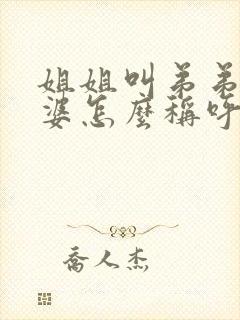 姐姐叫弟弟
婆怎麼稱呼
喬人杰